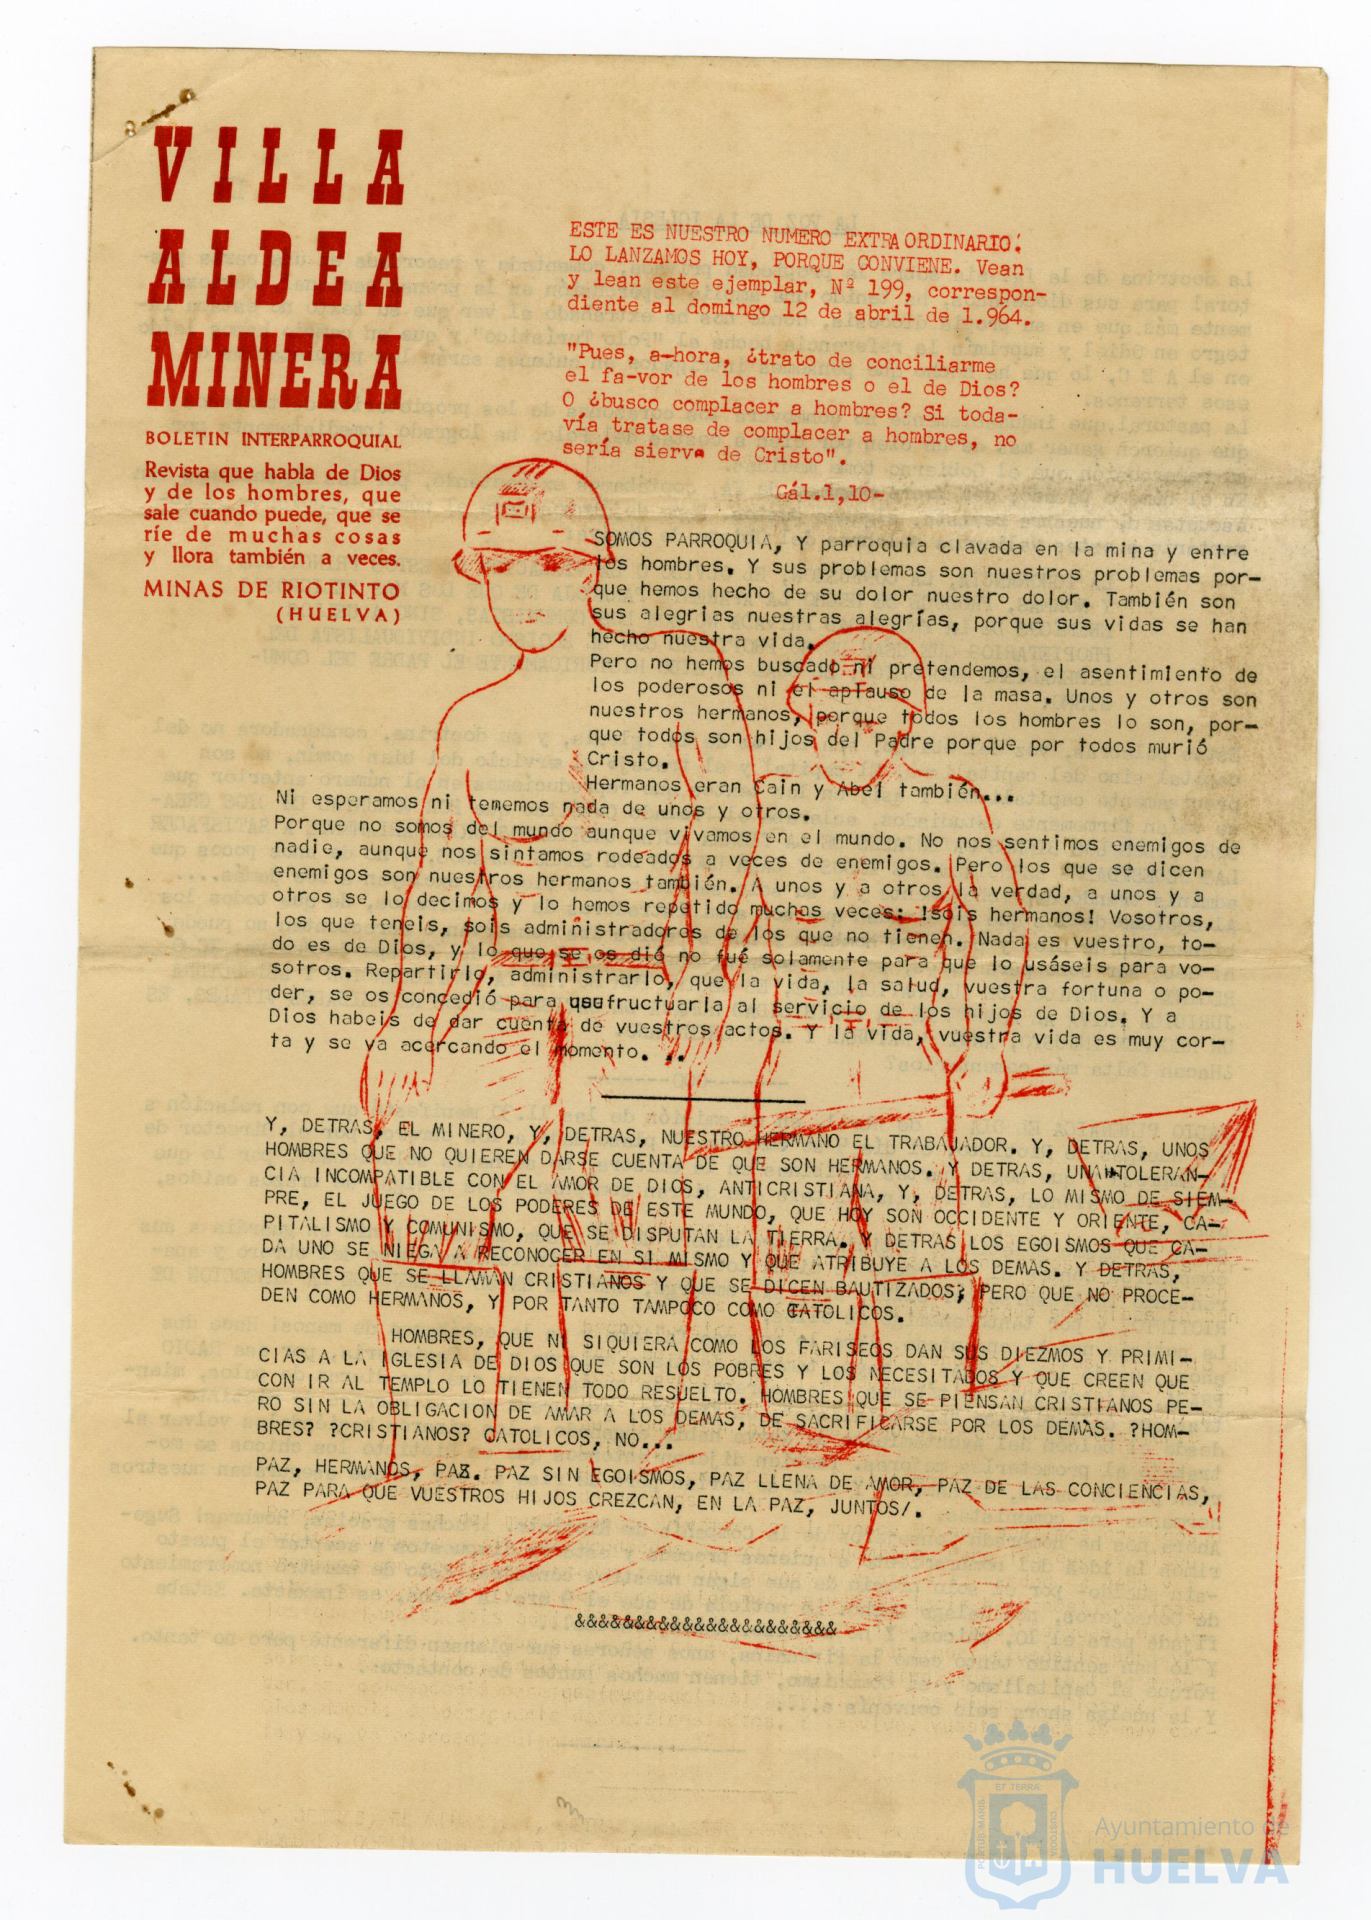 VILLA
ALDEA
MINERA
BOLETIN INTERPARROQUIAL
Revista que habla de Dios
y de los hombres, que
sale cuando puede, que se
ríe de muchas cosas
y llora también a veces.
MINAS DE RIOTINTO
(HUELVA)
ESTE ES NUESTRO NUMERO EXTRAORDINARIO.
LO LANZAMOS HOY, PORQUE CONVIENE. Vean
y lean este ejemplar, Nº 199, correspon-
diente al domingo 12 de abril de 1.964.
"Pues, a-hora, ¿trato de conciliarme
el fa-vor de los hombres o el de Dios?
O ¿busco complacer a hombres? Si toda-
vía tratase de complacer a hombres, no
sería siervo de Cristo".
Gál.1,10-
SOMOS PARROQUIA, Y parroquia clavada en la mina y entre
los hombres. Y sus problemas son nuestros problemas por-
que hemos hecho de su dolor nuestro dolor. También son
sus alegrias nuestras alegrías, porque sus vidas se han
hecho nuestra vida.
Pero no hemos buscado ni pretendemos, el asentimiento de
los poderosos ni el aplauso de la masa. Unos y otros son
nuestros hermanos, porque todos los hombres lo son, por-
que todos son hijos del Padre porque por todos murió
Cristo.
Hermanos eran Cain y Abel también...
Ni esperamos ni tememos nada de unos y otros.
Porque no somos del mundo aunque vivamos en el mundo. No nos sentimos enemigos de
nadie, aunque nos sintamos rodeados a veces de enemigos. Pero los que se dicen
enemigos son nuestros hermanos también. A unos y a otros la verdad, a unos y a
otros se lo decimos y lo hemos repetido muchas veces: !sois hermanos! Vosotros,
los que teneis, sois administradores de los que no tienen. Nada es vuestro, to-
do es de Dios, y lo que se os dió no fué solamente para que lo usáseis para vo-
sotros. Repartirlo, administrarlo, que la vida, la salud, vuestra fortuna o po-
der, se os concedió para usufructuarla al servicio de los hijos de Dios. Y a
Dios habeis de dar cuenta de vuestros actos. Y la vida, vuestra vida es muy cor-
ta y se va acercando el momento. ..
Y, DETRAS, EL MINERO, Y, DETRAS, NUESTRO HERMANO EL TRABAJADOR. Y, DETRAS, UNOS
HOMBRES QUE NO QUIEREN DARSE CUENTA DE QUE SON HERMANOS. Y DETRAS, UNA INTOLERAN-
CIA INCOMPATIBLE CON EL AMOR DE DIOS, ANTICRISTIANA, Y, DETRAS, LO MISMO DE SIEM-
PRE, EL JUEGO DE LOS PODERES DE ESTE MUNDO, QUE HOY SON OCCIDENTE Y ORIENTE, CA-
PITALISMO Y COMUNISMO, QUE SE DISPUTAN LA TIERRA. Y DETRAS LOS EGOISMOS QUE CA-
DA UNO SE NIEGA A RECONOCER EN SI MISMO Y QUE ATRIBUYE A LOS DEMAS. Y DETRAS,
HOMBRES QUE SE LLAMAN CRISTIANOS Y QUE SE DICEN BAUTIZADOS, PERO QUE NO PROCE-
DEN COMO HERMANOS, Y POR TANTO TAMPOCO COMO CATOLICOS.
HOMBRES, QUE NI SIQUIERA COMO LOS FARISEOS DAN SUS DIEZMOS Y PRIMI-
CIAS A LA IGLESIA DE DIOS QUE SON LOS POBRES Y LOS NECESITADOS Y QUE CREEN QUE
CON IR AL TEMPLO LO TIENEN TODO RESUELTO. HOMBRES QUE SE PIENSAN CRISTIANOS PE-
RO SIN LA OBLIGACION DE AMAR A LOS DEMAS, DE SACRIFICARSE POR LOS DEMAS. ?HOM-
BRES? ?CRISTIANOS? CATOLICOS, NO...
PAZ, HERMANOS, PAZ. PAZ SIN EGOISMOS, PAZ LLENA DE AMOR, PAZ DE LAS CONCIENCIAS,
PAZ PARA QUE VUESTROS HIJOS CREZCAN, EN LA PAZ, JUNTOS/.
&&&&&&&&&&&&&&&&&&&&&&
PORTUS MARIS
ET TERRA
CUSTODIA
Ayuntamiento de
HUELVA